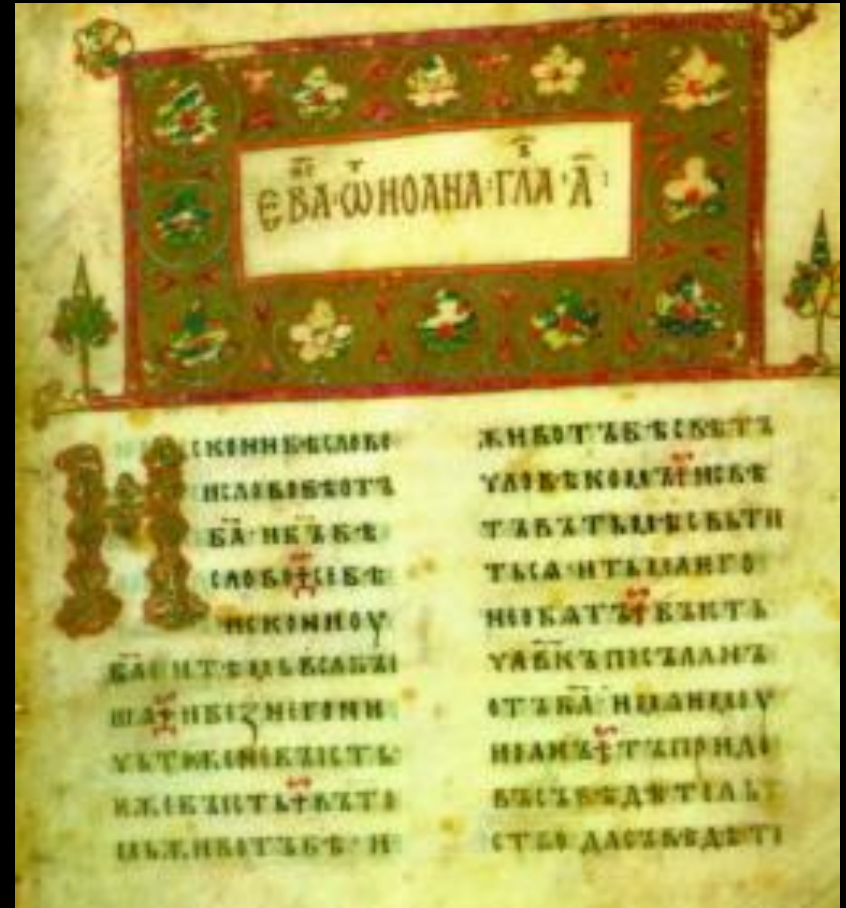 ЕВА·ѾИОАНА·ГЛА·А҃·
ИСКОНИБѢСЛОВО
ИСЛОВОБѢОТЪ
БА҃·ИБЪ҃БѢ
СЛОВО·СЕБѢ
ИСКОНИОУ
БА҃·ИТѢМЬВСАБЪІ
ША·ИБЕЖНЕГОНИ
ЧЬТОЖЕНЕБЪІСТЬ·
ЕЖЕБЪІСТЬ·ВЪТО
МЬЖИВОТЪБѢ·И
ЖИВОТЪБѢСВѢТЪ
ЧЛОВѢКОМЪ·ИСВѢ
ТЪВЪТЬМѢСВЬТИ
ТЬСА·ИТЬМАНЕГО
НЕОБАТЪ·БЪІСТЬ
ЧЛВ҃КЪПОСЪЛАНЪ
ОТЪБА҃·ИМАЕМОУ
ИОАНЪ·ТЪПРИДЕ
ВЪСЪВѢДѢТЕЛЬ
СТВО·ДАСЪВѢДѢТЕ